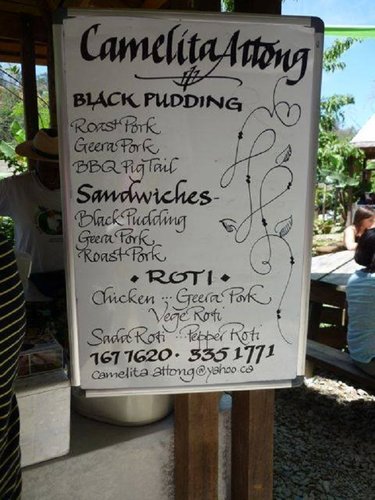 Camelita Attong
BLACK PUDDING
Roast Pork
Geera Pork
BBQ Pig Tail
Sandwiches-
Black Pudding
Geera Pork
Roast Pork
• ROTI •
Chicken ... Geera Pork
Vege Roti
Sada Roti ... Pepper Roti
767 7620 • 335 1771
camelita attong@yahoo ca